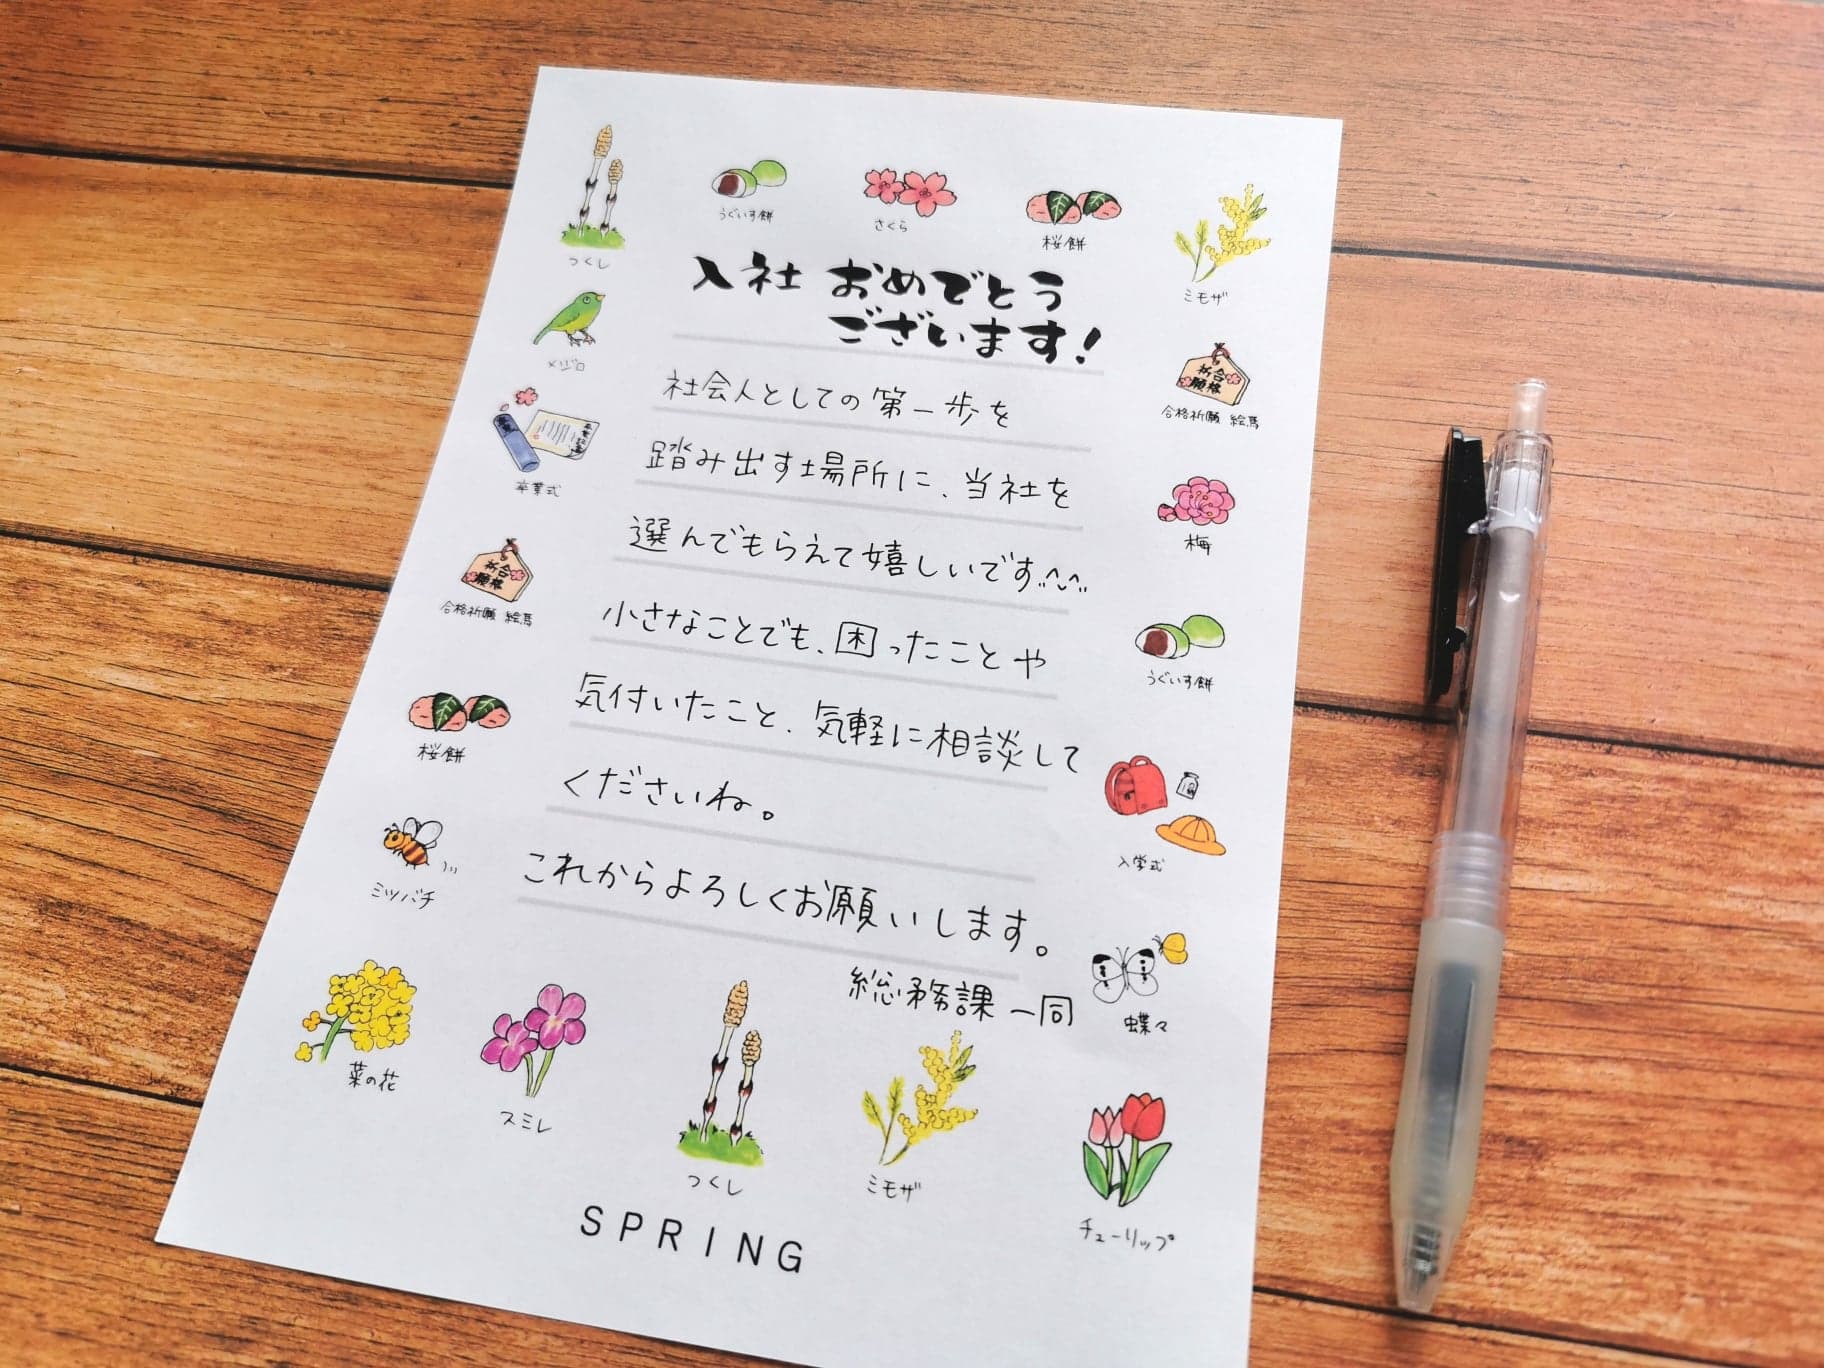 つくし
うぐいす餅
さくら
桜餅
ミモザ
入社 おめでとう
ございます!
メジロ
合格
祈願
合格祈願 絵馬
社会人としての第一歩を
卒業式
踏み出す場所に、当社を
梅
選んでもらえて嬉しいです
合格
祈願
合格祈願 絵馬
小さなことでも、困ったことや
うぐいす餅
気付いたこと、気軽に相談して
桜餅
くださいね。
入学式
ミツバチ
これからよろしくお願いします。
総務課 一同
蝶々
菜の花
スミレ
つくし
ミモザ
チューリップ
SPRING